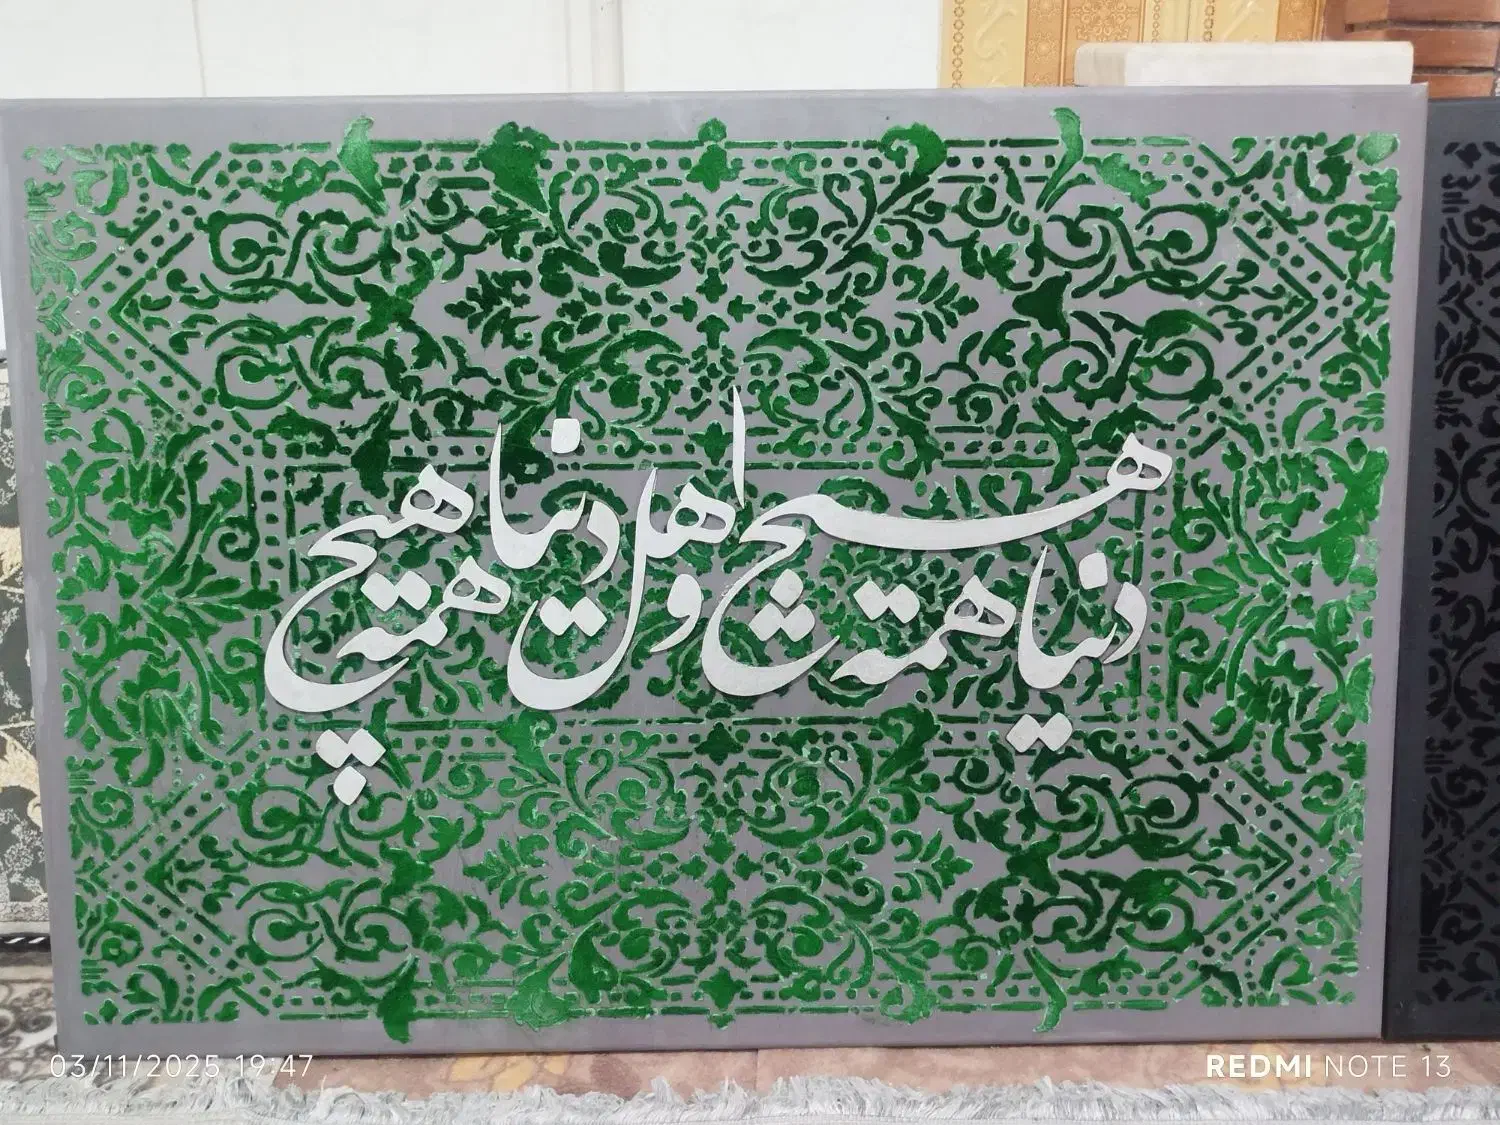 دنیا همه هیچ و اهل دنیا همه هیچ
03/11/2025 19:47
REDMI NOTE 13